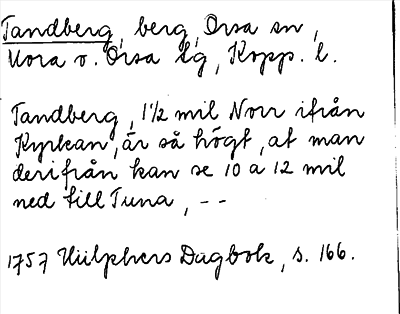 Tandberg, berg, Orsa sn,
Mora o. Orsa tg, Kopp. l.
Tandberg, 1½ mil Norr ifrån
Kyrkan, är så högt, at man
derifrån kan se 10 a 12 mil
ned till Tuna, --
1757 Hülphers Dagbok, s. 166.